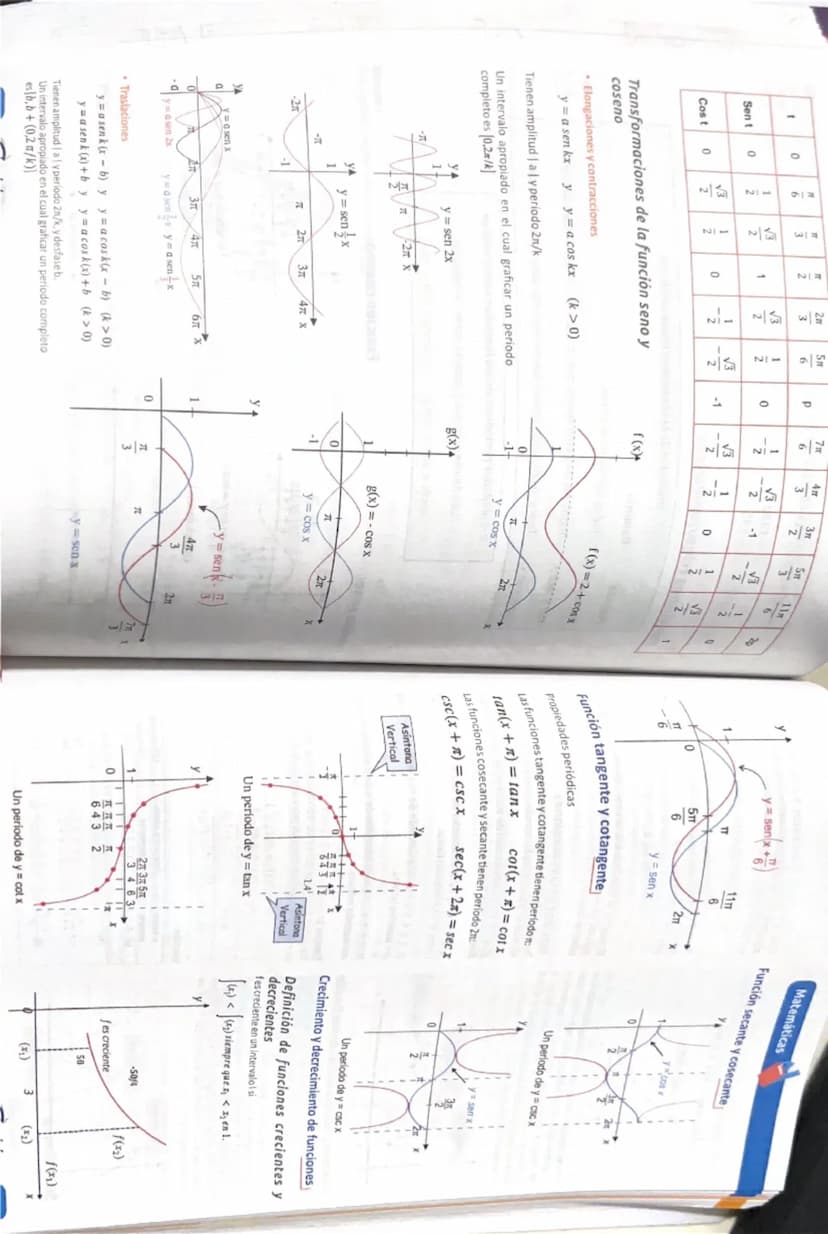 t 0 π/6 π/3 π/2 2π/3 5π/6 p 7π/6 4π/3 3π/2 5π/3 11π/6 2p
Sen t 0 1/2 √3/2 1 √3/2 1/2 0 -1/2 -√3/2 -1 -√3/2 -1/2 0
Cos t 0 √3/2 1/2 0 -1/2 -√3/2 -1 -√3/2 -1/2 0 1/2 √3/2 1
Transformaciones de la función seno y
coseno
• Elongaciones y contracciones
y = a sen kx y y = a cos kx (k > 0)
Tienen amplitud | a | y periodo 2π/k
Un intervalo apropiado en el cual graficar un periodo
completo es [0,2π/k]
y
1
y = sen 2x
-π π/2 π 2π x
y
1
y = sen 1/2 x
-2π -π π 2π 3π 4π x
-1
y
a
y = a sen x
0 π 2π 3π 4π 5π 6π x
-a
y = a sen 2x
y = a sen 1/2 x
y = a sen 1/3 x
• Traslaciones
y = a sen k(x − b) y y = a cos k(x − b) (k > 0)
y = a sen k(x) + b y y = a cos k(x) + b (k > 0)
Tienen amplitud | a | y periodo 2π/k, y desfase b.
Un intervalo apropiado en el cual graficar un periodo completo
es [b, b + (0,2 π/k)]
f(x)
f(x) = 2 + cos x
1
0 π 2π x
-1
y = cos x
g(x)
g(x) = - cos x
1
0 π 2π x
-1
y = cos x
y
y = sen(x - π/3)
1
0 π/3 π 4π/3 2π 7π/3
y = sen x
y
y = sen(x + π/6)
1
-π/6 0 5π/6 π 11π/6 2π x
y = sen x
Función tangente y cotangente
Propiedades periódicas
Las funciones tangente y cotangente tienen período π:
tan(x + π) = tan x cot(x + π) = cot x
Las funciones cosecante y secante tienen período 2π:
csc(x + π) = csc x sec(x + 2π) = sec x
Asíntona
Vertical
y
1
0 π/6 π/4 π/3 π/2 x
1,4
Asíntona
Vertical
Un periodo de y = tan x
y
1
0 π/6 π/4 π/3 π/2 2π/3 3π/4 5π/6 π x
Un periodo de y = cot x
Matemáticas
Función secante y cosecante
y
1
y = cos x
0 π/2 π 3π/2 2π x
Un periodo de y = csc x
y
1
y = sen x
0 π/2 3π/2 2π x
Un periodo de y = csc x
Crecimiento y decrecimiento de funciones
Definición de funciones crecientes y
decrecientes
f es creciente en un intervalo I si
∫(x₁) < ∫(x₂) siempre que x₁ < x₂ en I.
y
-50/4
f es creciente
f(x₂)
50
f(x₁)
0 (x₁) 3 (x₂) x